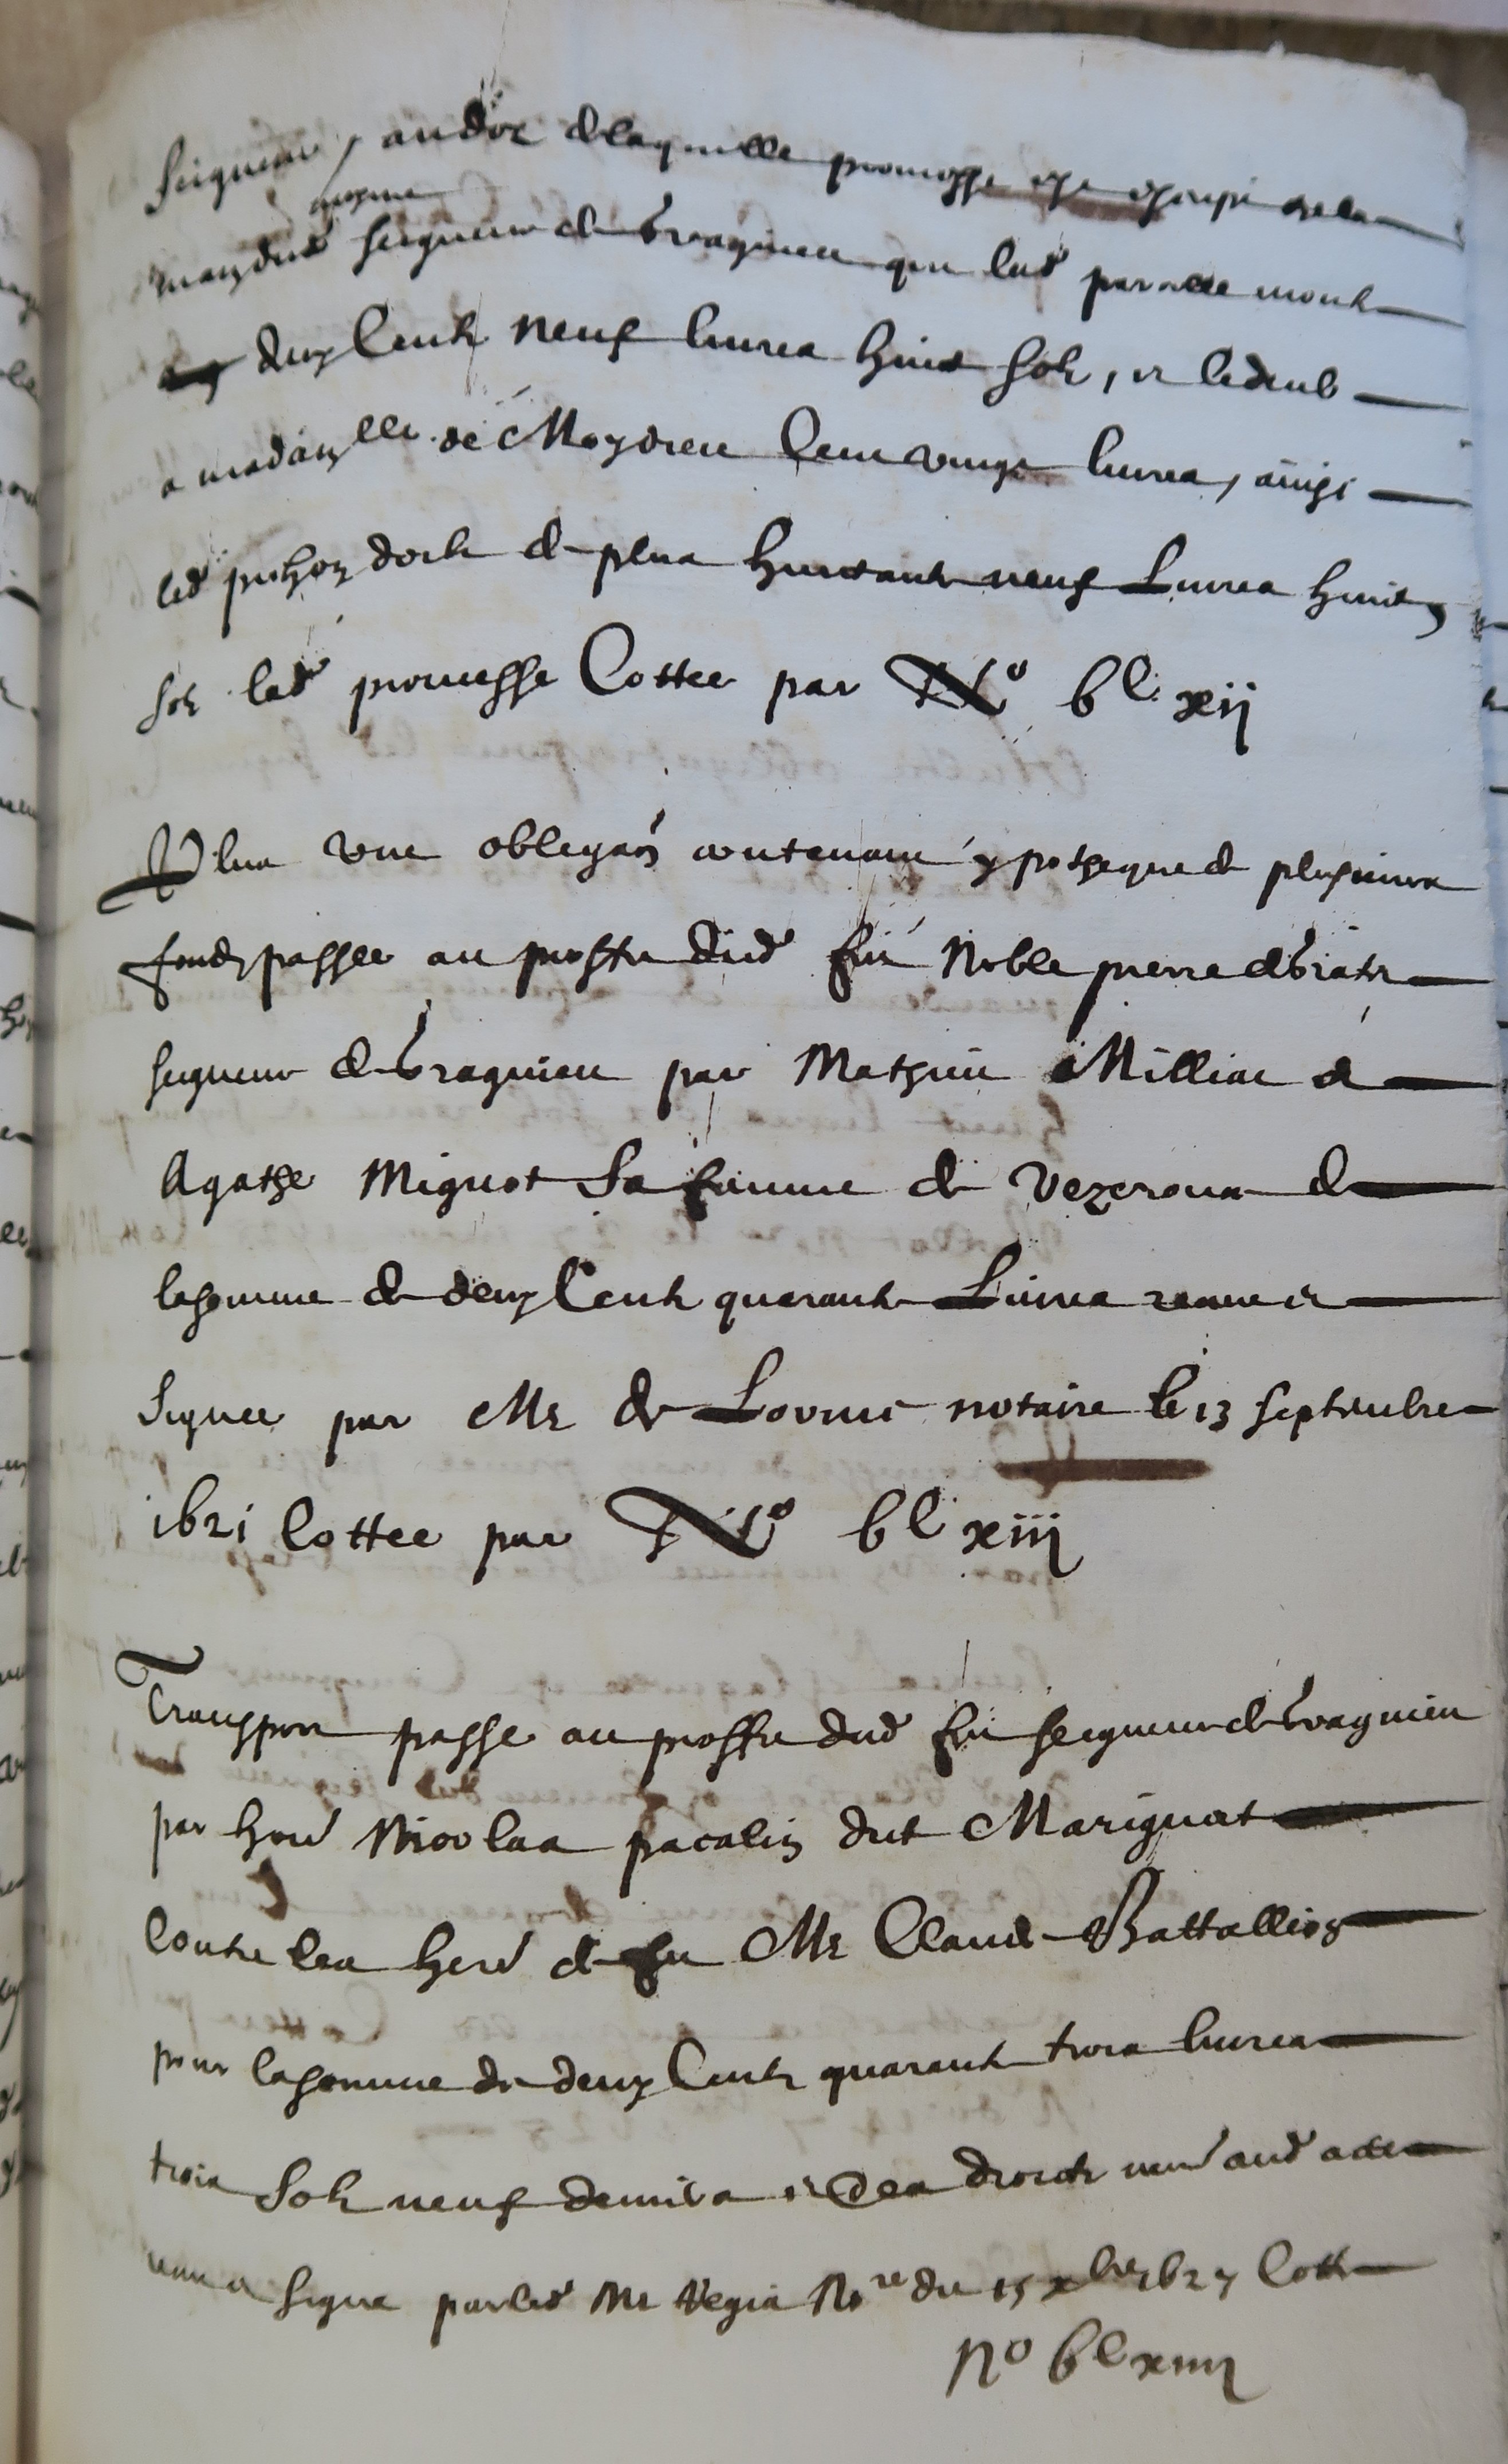 seigneur, au dox de laquelle promesse est escript de la
mesme
main dud seigneur de bragnieu que lad parcelle monte
deux Centz neuf livres huict solz, et led doub
a madazelle de Moydieu Cent vingt livres, ainsi
led pichon doibt de plus huictante neuf Livres huict
solz lad promesse Cottee par No bc xii
Plus une obligaõn contenant ypotheque de plusieurs
fondz passee au proffit dud feu Noble pierre de briate
seigneur de bragnieu par Mathieu Milliat &
Agathe Mignot Sa femme de Vezerona de
la somme de deux Centz quarante Livres receue et
signee par Me de Lorme notaire le 13 septembre
1621 Cottee par No bc xiii
Transport passe au proffit dud feu seigneur de bragnieu
par hond Nicolas pacalin dit Marignat
Contre les herd de feu Me Claude Battallion
pour la somme de deux Centz quarante trois livres
trois Solz neuf deniers et des droictz aud acte
signe par led Me Vegia Nore du 15 xbre 1627 Cotte
No bc xiiii